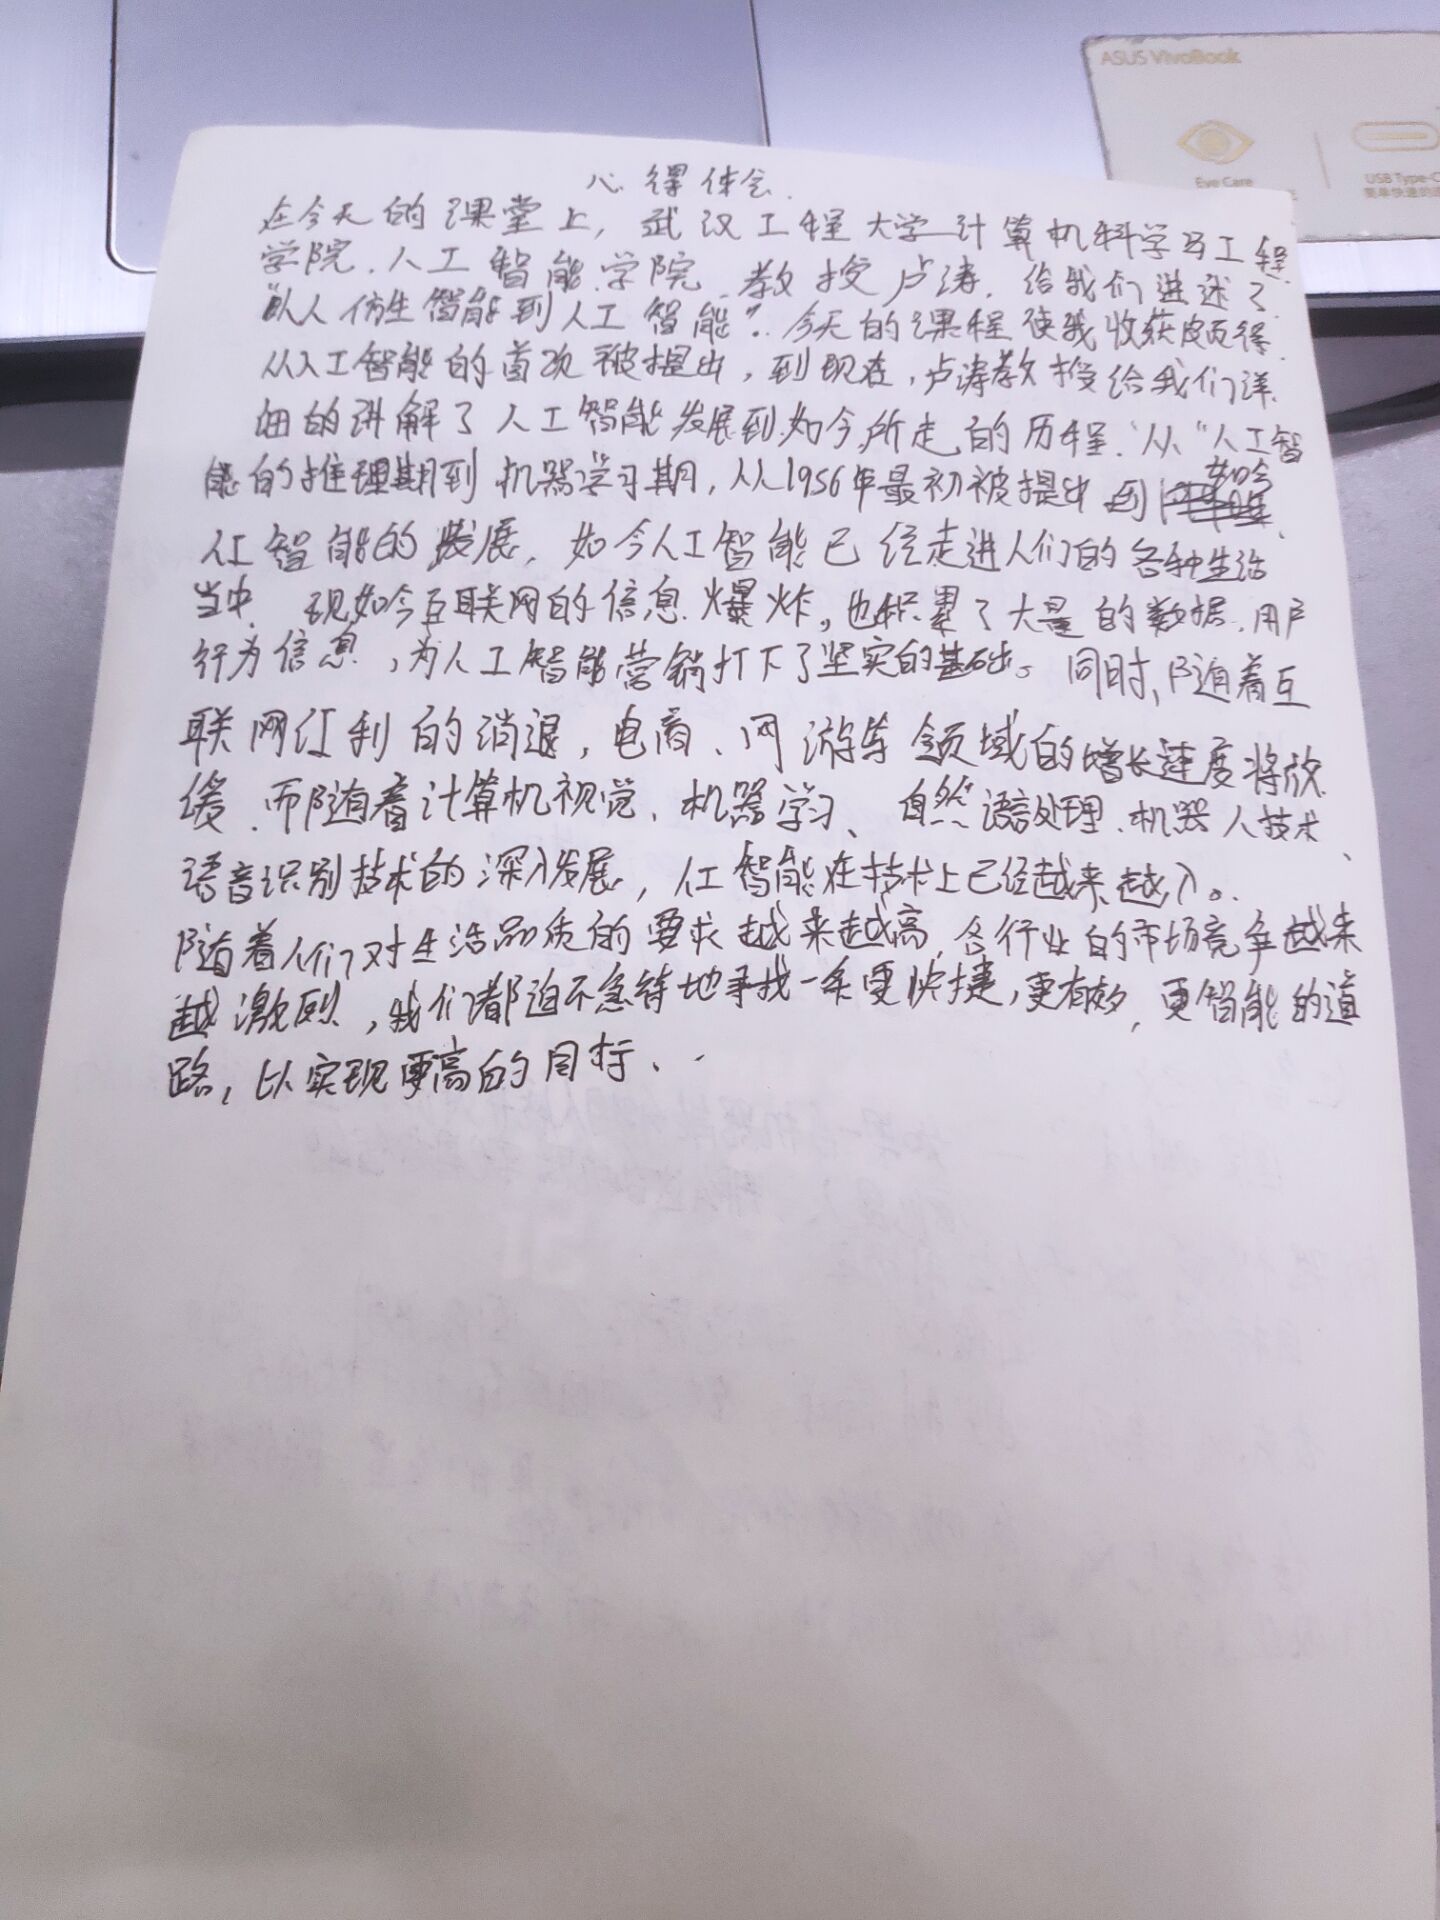 ASUS VivoBook
Eye Care
USB Type-C
心得体会.
在今天的课堂上, 武汉工程大学计算机科学与工程
学院.人工智能学院 教授卢涛. 给我们讲述了
"从人仿生智能到人工智能". 今天的课程使我收获颇得.
从人工智能的首次被提出, 到现在, 卢涛教授给我们详
细的讲解了人工智能发展到如今所走的历程. 从"人工智
能的推理期到机器学习期, 从1956年最初被提出到如今
人工智能的发展, 如今人工智能已经走进人们的各种生活
当中. 现如今互联网的信息爆炸, 也积累了大量的数据、用户
行为信息, 为人工智能营销打下了坚实的基础。同时, 随着互
联网红利的消退, 电商、网游等领域的增长速度将放
缓. 而随着计算机视觉、机器学习、自然语言处理、机器人技术、
语音识别技术的深入发展, 人工智能在技术上已经越来越入。
随着人们对生活品质的要求越来越高, 各行业的市场竞争越来
越激烈, 我们都迫不急待地寻找一条更快捷, 更有效, 更智能的道
路, 以实现更高的目标、.